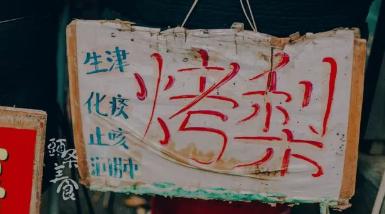 生津
化痰
止咳
润肺
烤梨
颐朵美食